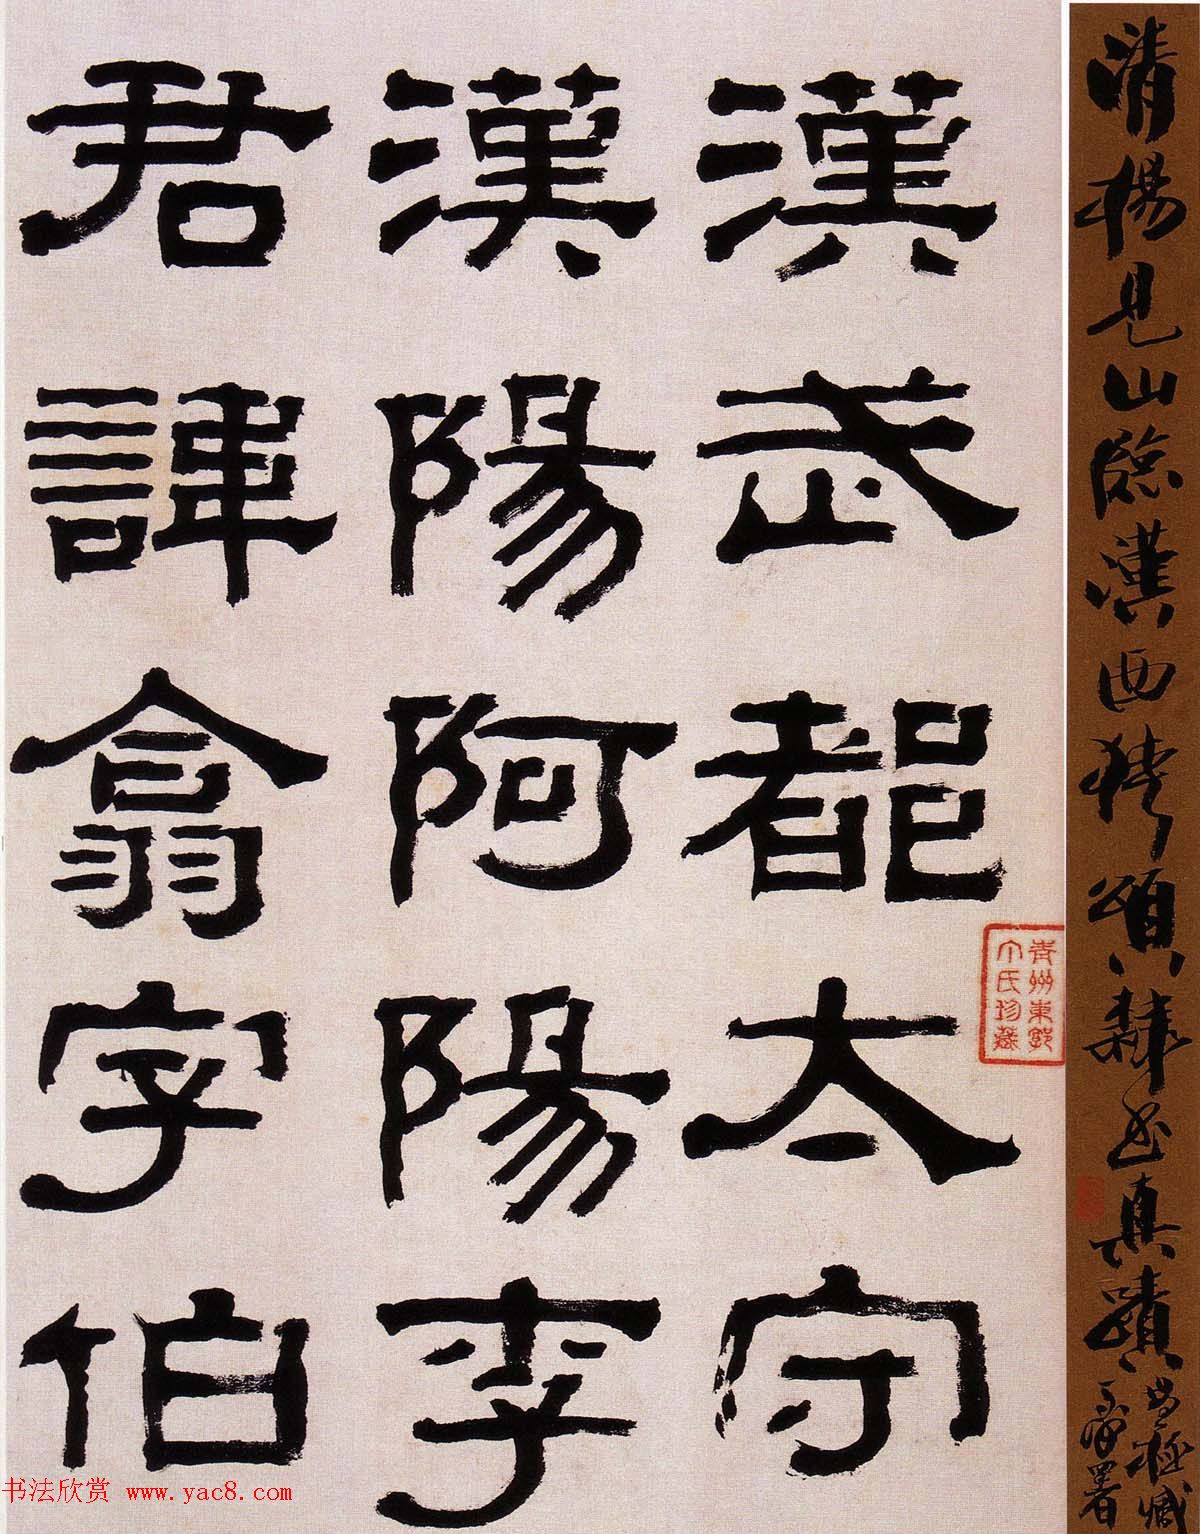 清楊見山臨漢西狹頌隸書真蹟
漢武都太守
漢陽阿陽李
君諱翕字伯
青州東郭
氏珍藏
书法欣赏 www.yac8.com